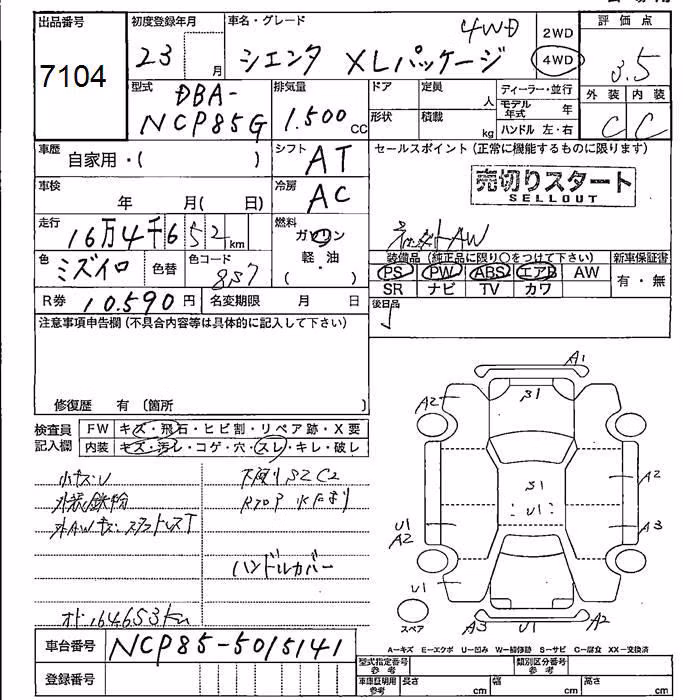 出品番号
7104
初度登録年月
23 年 月
車名・グレード
シエンタ XLパッケージ
4WD
2WD
4WD
評価点
3.5
外装 内装
C C
型式
DBA-
NCP85G
排気量
1.500cc
ドア
定員
人
形状
積載
kg
ディーラー・並行
モデル年式 年
ハンドル 左・右
車歴
自家用・( )
シフト
AT
車検
年 月( 日)
冷房
AC
走行
16万4千652km
燃料
ガソリン
軽・油
( )
色
ミズイロ
色替
色コード
8S7
R券 10.590円
名変期限 月 日
セールスポイント (正常に機能するものに限ります)
売切りスタート
SELLOUT
AW
装備品 (純正品に限り○をつけて下さい)
新車保証書
PS PW ABS エアB AW
SR ナビ TV カワ
有・無
後日品
注意事項申告欄 (不具合内容等は具体的に記入して下さい)
修復歴 有 〔箇所 〕
検査員
記入欄
FW キズ・飛石・ヒビ割・リペア跡・X要
内装 キズ・汚レ・コゲ・穴・スレ・キレ・破レ
小キズU
下廻りS2C2
外装鉄粉
水たまり
外AWキズ
ハンドルカバー
164653km
車台番号 NCP85-5015141
登録番号
A1
A2
S1
S1
U1
A2
A3
U1
A2
U1
A3
U1
A2
スペア
A-キズ E-エクボ U-凹み W-補修跡 S-サビ C-腐食 XX-交換済
型式指定番号 参考
類別区分番号 参考
車庫証明用 参考
長さ cm
幅 cm
高さ cm